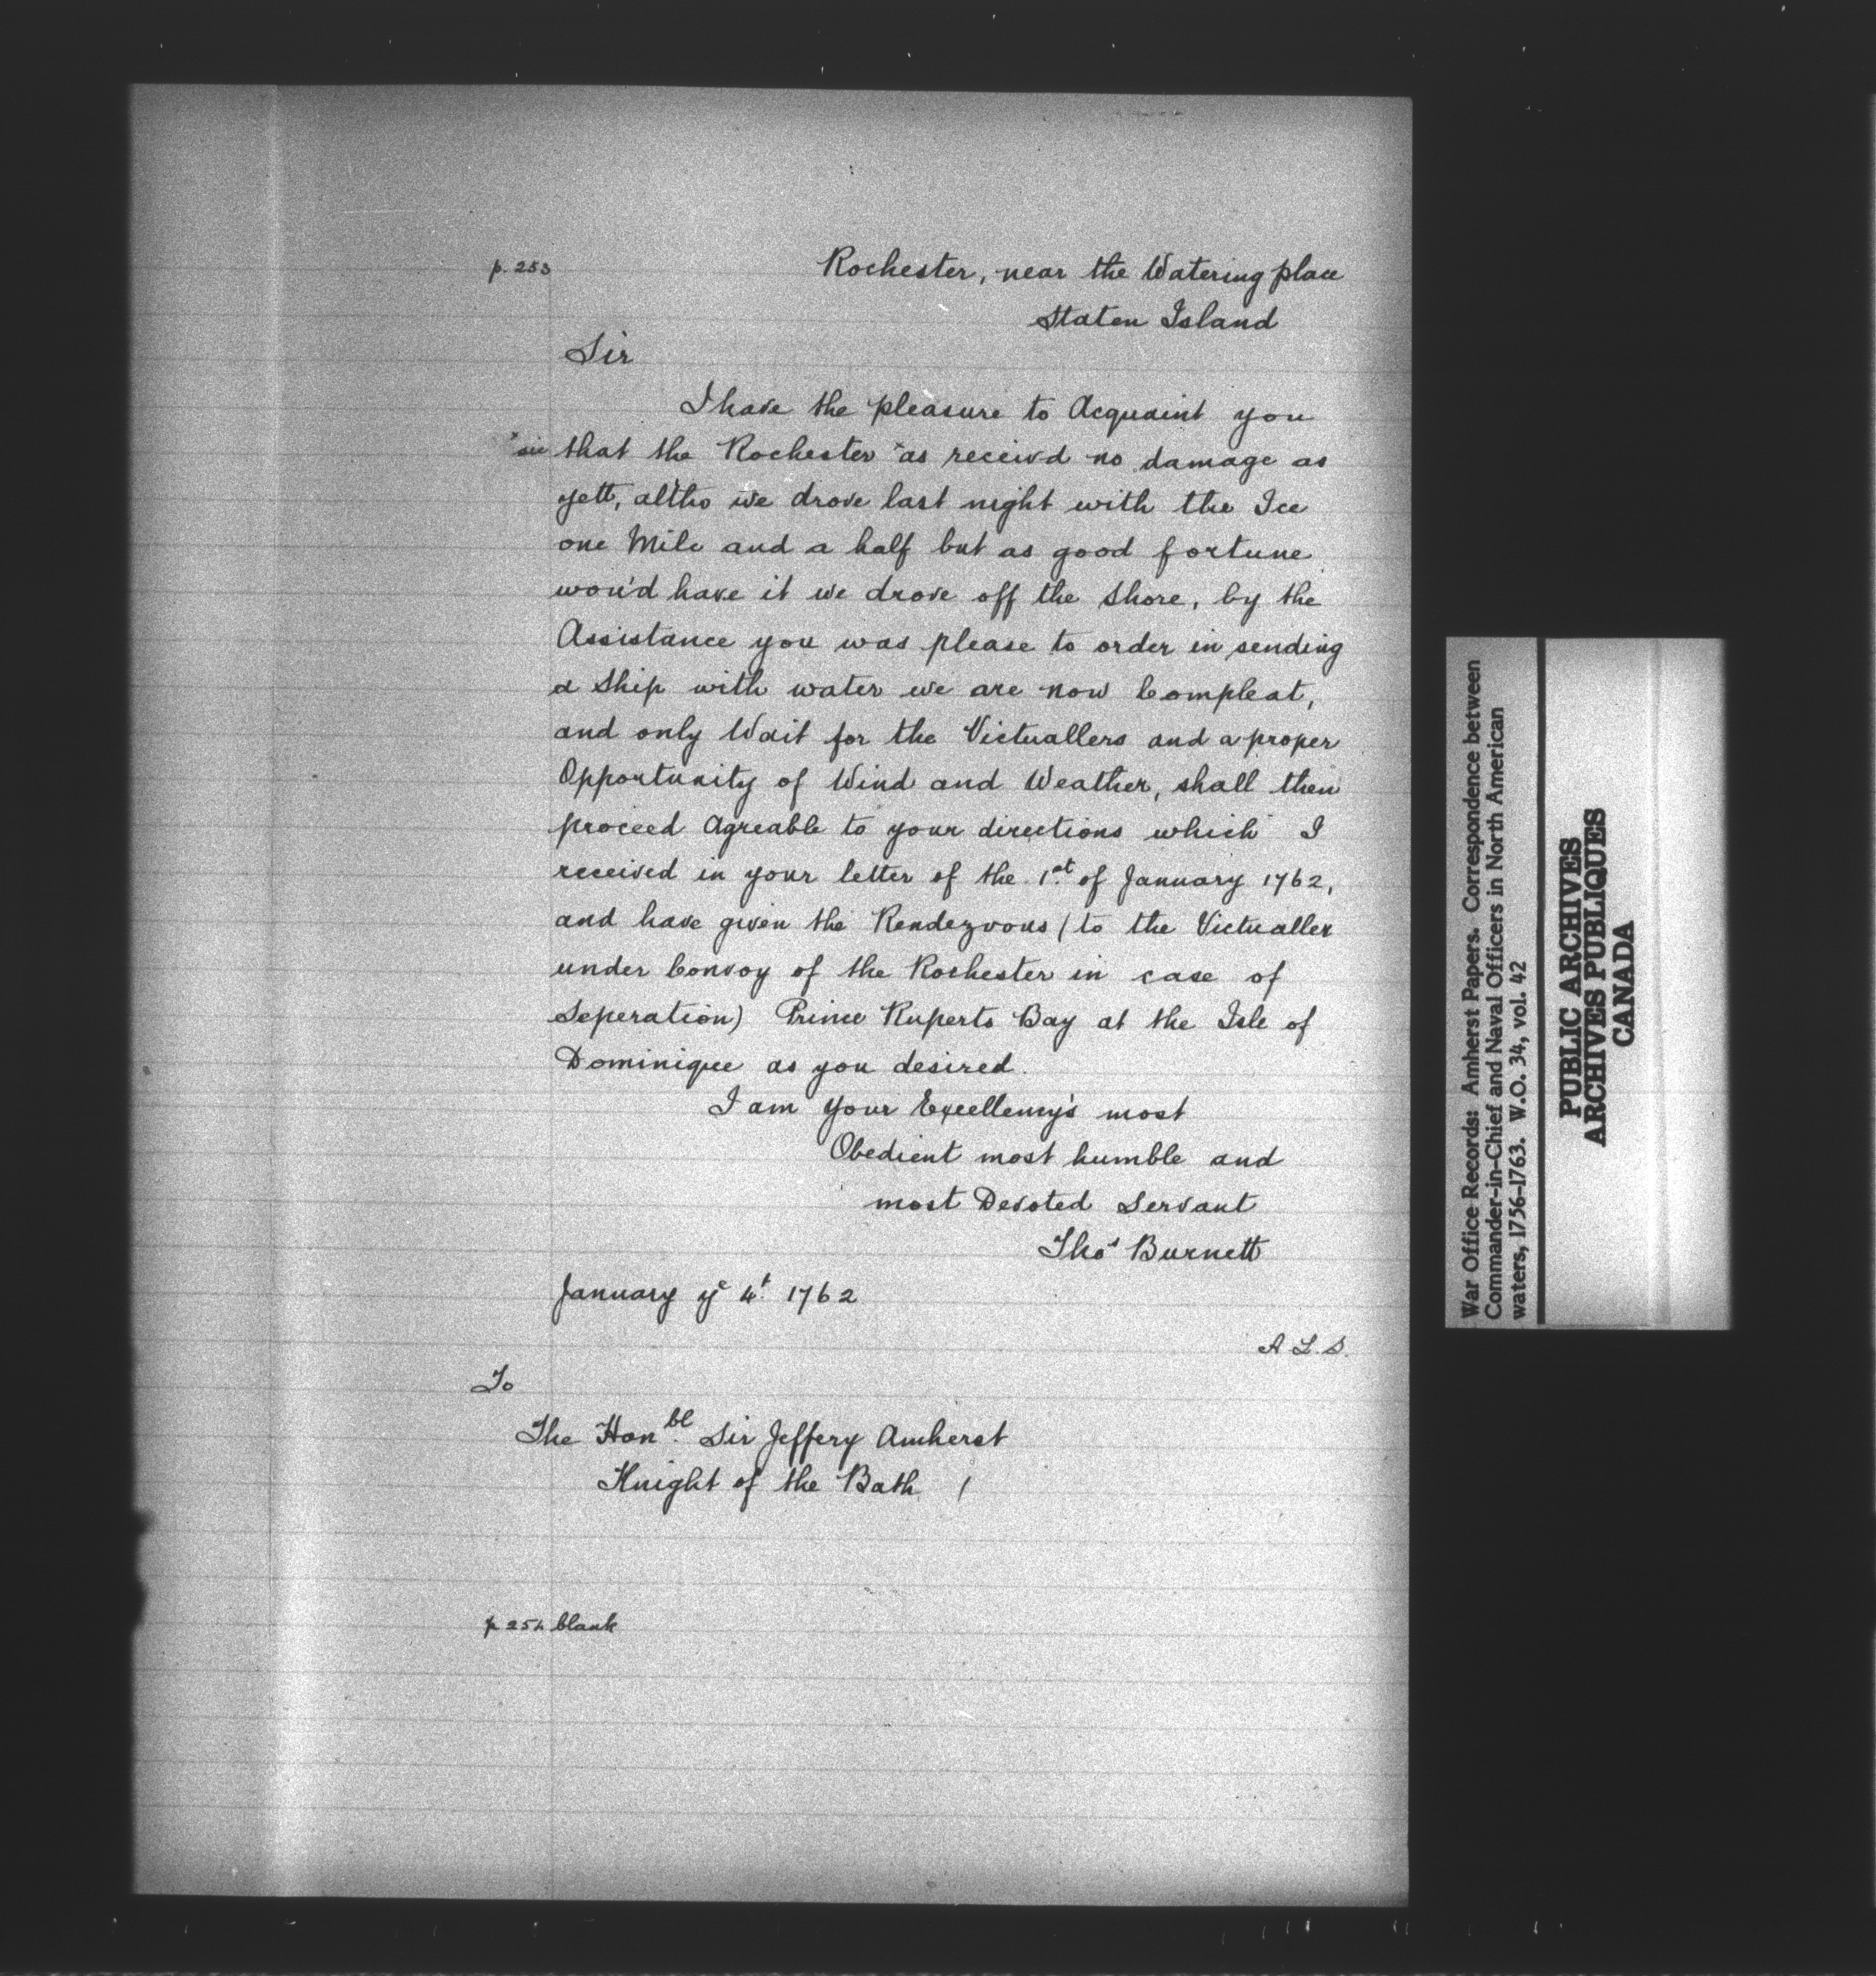 p. 253
Rochester, near the Watering place
Staten Island
Sir
I have the pleasure to Acquaint you
* sic that the Rochester *as receivd no damage as
yett, altho we drove last night with the Ice
one Mile and a half but as good fortune
wou'd have it we drove off the Shore, by the
Assistance you was please to order in sending
a Ship with water we are now Compleat,
and only Wait for the Victuallers and a proper
Opportunity of Wind and Weather, shall then
proceed Agreable to your directions which I
received in your letter of the 1st of January 1762,
and have given the Rendezvous (to the Victualler
under Convoy of the Rochester in case of
Seperation) Prince Ruperts Bay at the Isle of
Dominique as you desired.
I am Your Excellency's most
Obedient most humble and
most Devoted Servant
Thos Burnett
January ye 4t. 1762
A. L. S.
To
The Honble. Sir Jeffery Amherst
Knight of the Bath /
p 254 blank
War Office Records: Amherst Papers. Correspondence between
Commander-in-Chief and Naval Officers in North American
waters, 1756-1763. W.O. 34, vol. 42
PUBLIC ARCHIVES
ARCHIVES PUBLIQUES
CANADA